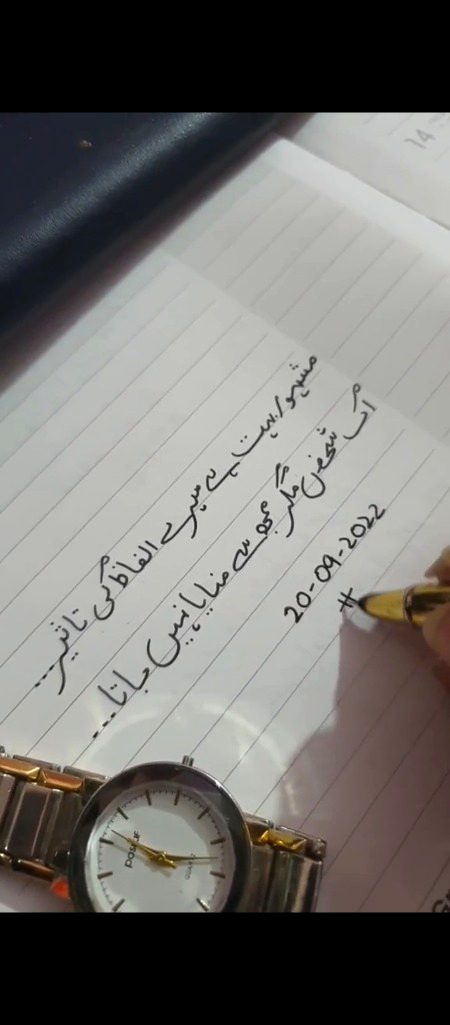 مشہور بہت ہے میرے الفاظ کی تاثیر....
اک شخص مگر مجھ سے منایا نہیں جاتا...
20-09-2022
#
14